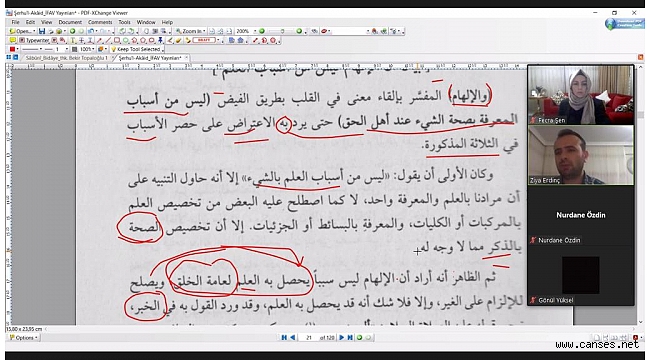 Şerhu'l-Akâid_İFAV Yayınları* - PDF-XChange Viewer
File Edit View Document Comments Tools Window Help
Open... 200%
Typewriter
100% Keep Tool Selected
Sâbûnî_Bidâye_thk. Bekir Topaloğlu 1 Şerhu'l-Akâid_İFAV Yayınları*
(والإلهام) المفسَّر بإلقاء معنى في القلب بطريق الفيض (ليس من أسباب
المعرفة بصحة الشيء عند أهل الحق) حتى يرد به الاعتراض على حصر الأسباب
في الثلاثة المذكورة.
وكان الأولى أن يقول: «ليس من أسباب العلم بالشيء» إلا أنه حاول التنبيه على
أن مرادنا بالعلم والمعرفة واحد، لا كما اصطلح عليه البعض من تخصيص العلم
بالمركبات أو الكليات، والمعرفة بالبسائط أو الجزئيات. إلا أن تخصيص الصحة
بالذكر مما لا وجه له.
ثم الظاهر أنه أراد أن الإلهام ليس سبباً يحصل به العلم لعامة الخلق ويصلح
للإلزام على الغير، وإلا فلا شك أنه قد يحصل به العلم، وقد ورد القول به في الخبر،
Fecra Şen
Ziya Erdinç
Nurdane Özdin
Nurdane Özdin
Gönül Yüksel
15,80 x 23,95 cm
Options 21 of 120
www.canses.net